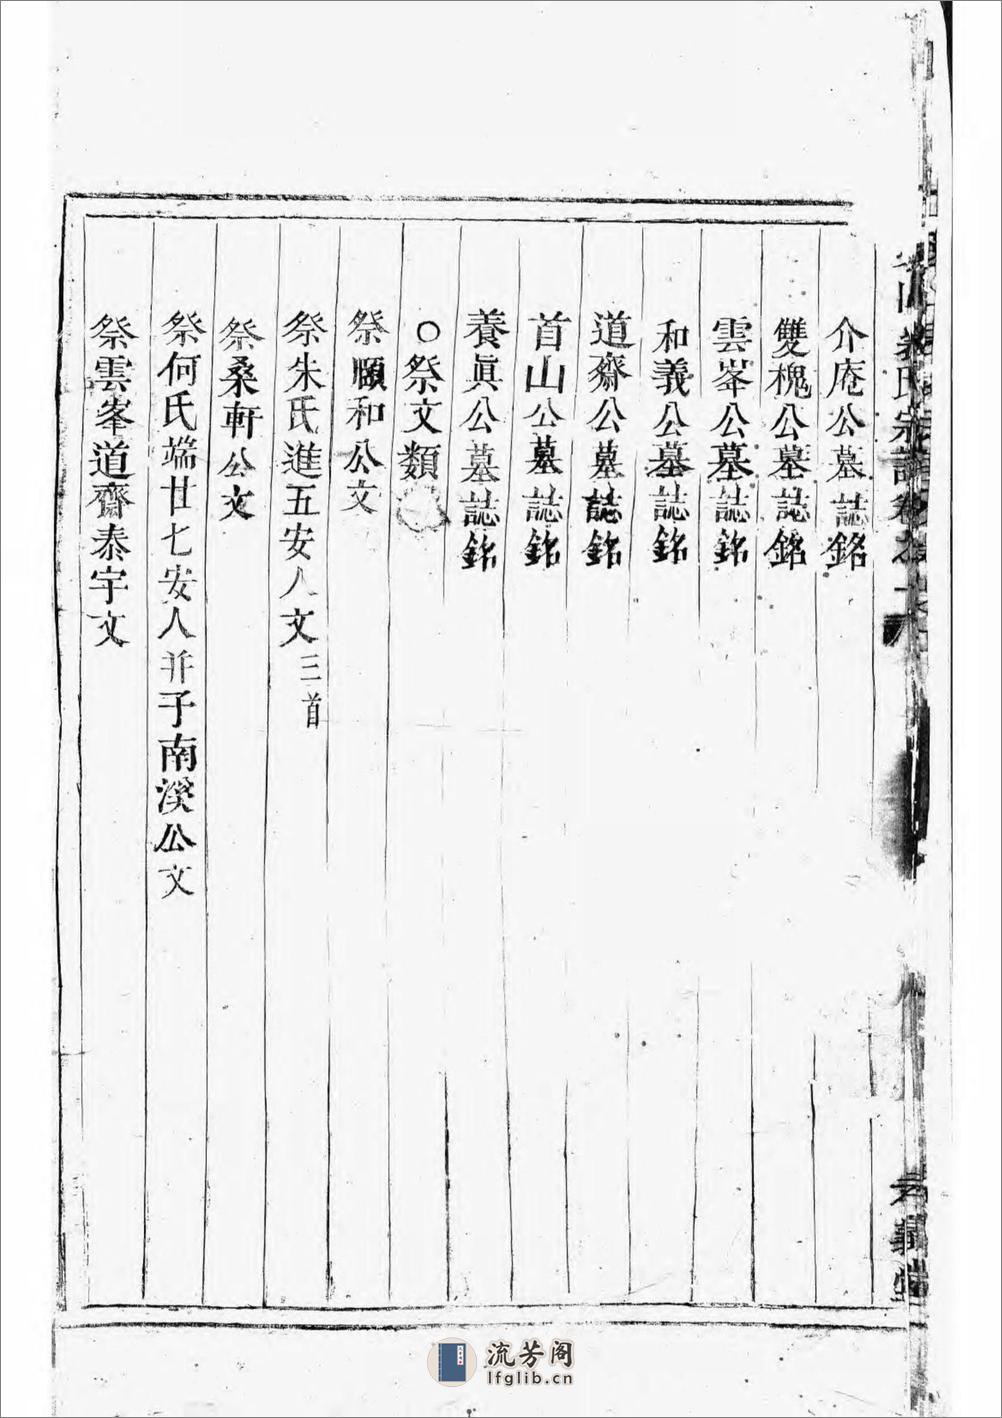 介庵公墓誌銘
雙槐公墓誌銘
雲峯公墓誌銘
和義公墓誌銘
道齋公墓誌銘
首山公墓誌銘
養眞公墓誌銘
○祭文類
祭頤和公文
祭朱氏進五安人文三首
祭桑軒公文
祭何氏端廿七安人并子南溪公文
祭雲峯道齋泰宇文
氏宗譜卷之
流芳阁
lfglib.cn